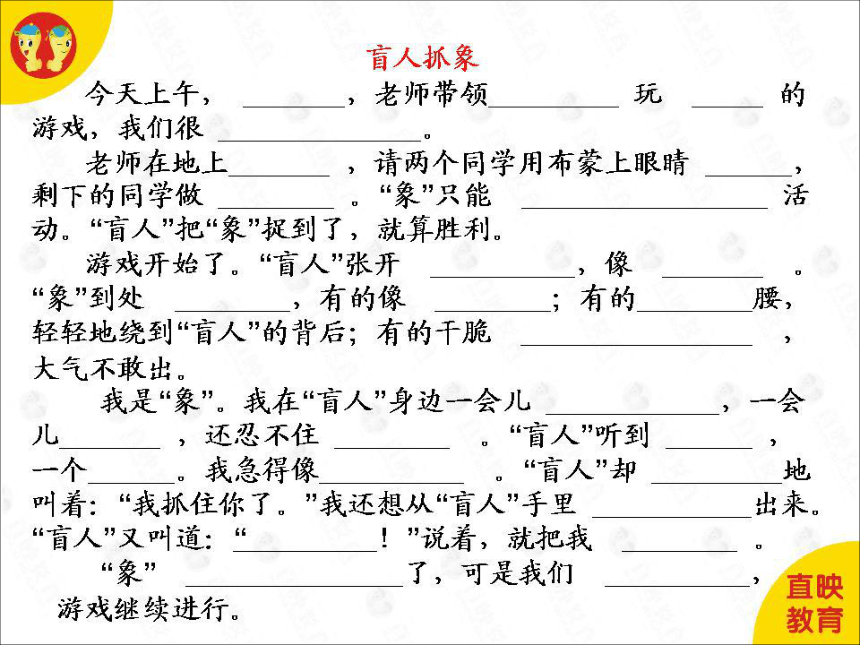 盲人抓象
今天上午， ________，老师带领__________ 玩 ______ 的
游戏，我们很 ________________。
老师在地上________ ，请两个同学用布蒙上眼睛 _______，
剩下的同学做 _________ 。“象”只能 ____________________ 活
动。“盲人”把“象”捉到了，就算胜利。
游戏开始了。“盲人”张开 ____________，像 ________ 。
“象”到处 _________，有的像 _________；有的_________腰，
轻轻地绕到“盲人”的背后；有的干脆 ___________________ ，
大气不敢出。
我是“象”。我在“盲人”身边一会儿 ______________，一会
儿________ ，还忍不住 _________ 。“盲人”听到 _______ ，
一个_______。我急得像____________ 。“盲人”却 __________地
叫着：“我抓住你了。”我还想从“盲人”手里 _____________出来。
“盲人”又叫道：“____________！”说着，就把我 _________ 。
“象” __________________了，可是我们 ____________，
游戏继续进行。
直映
教育